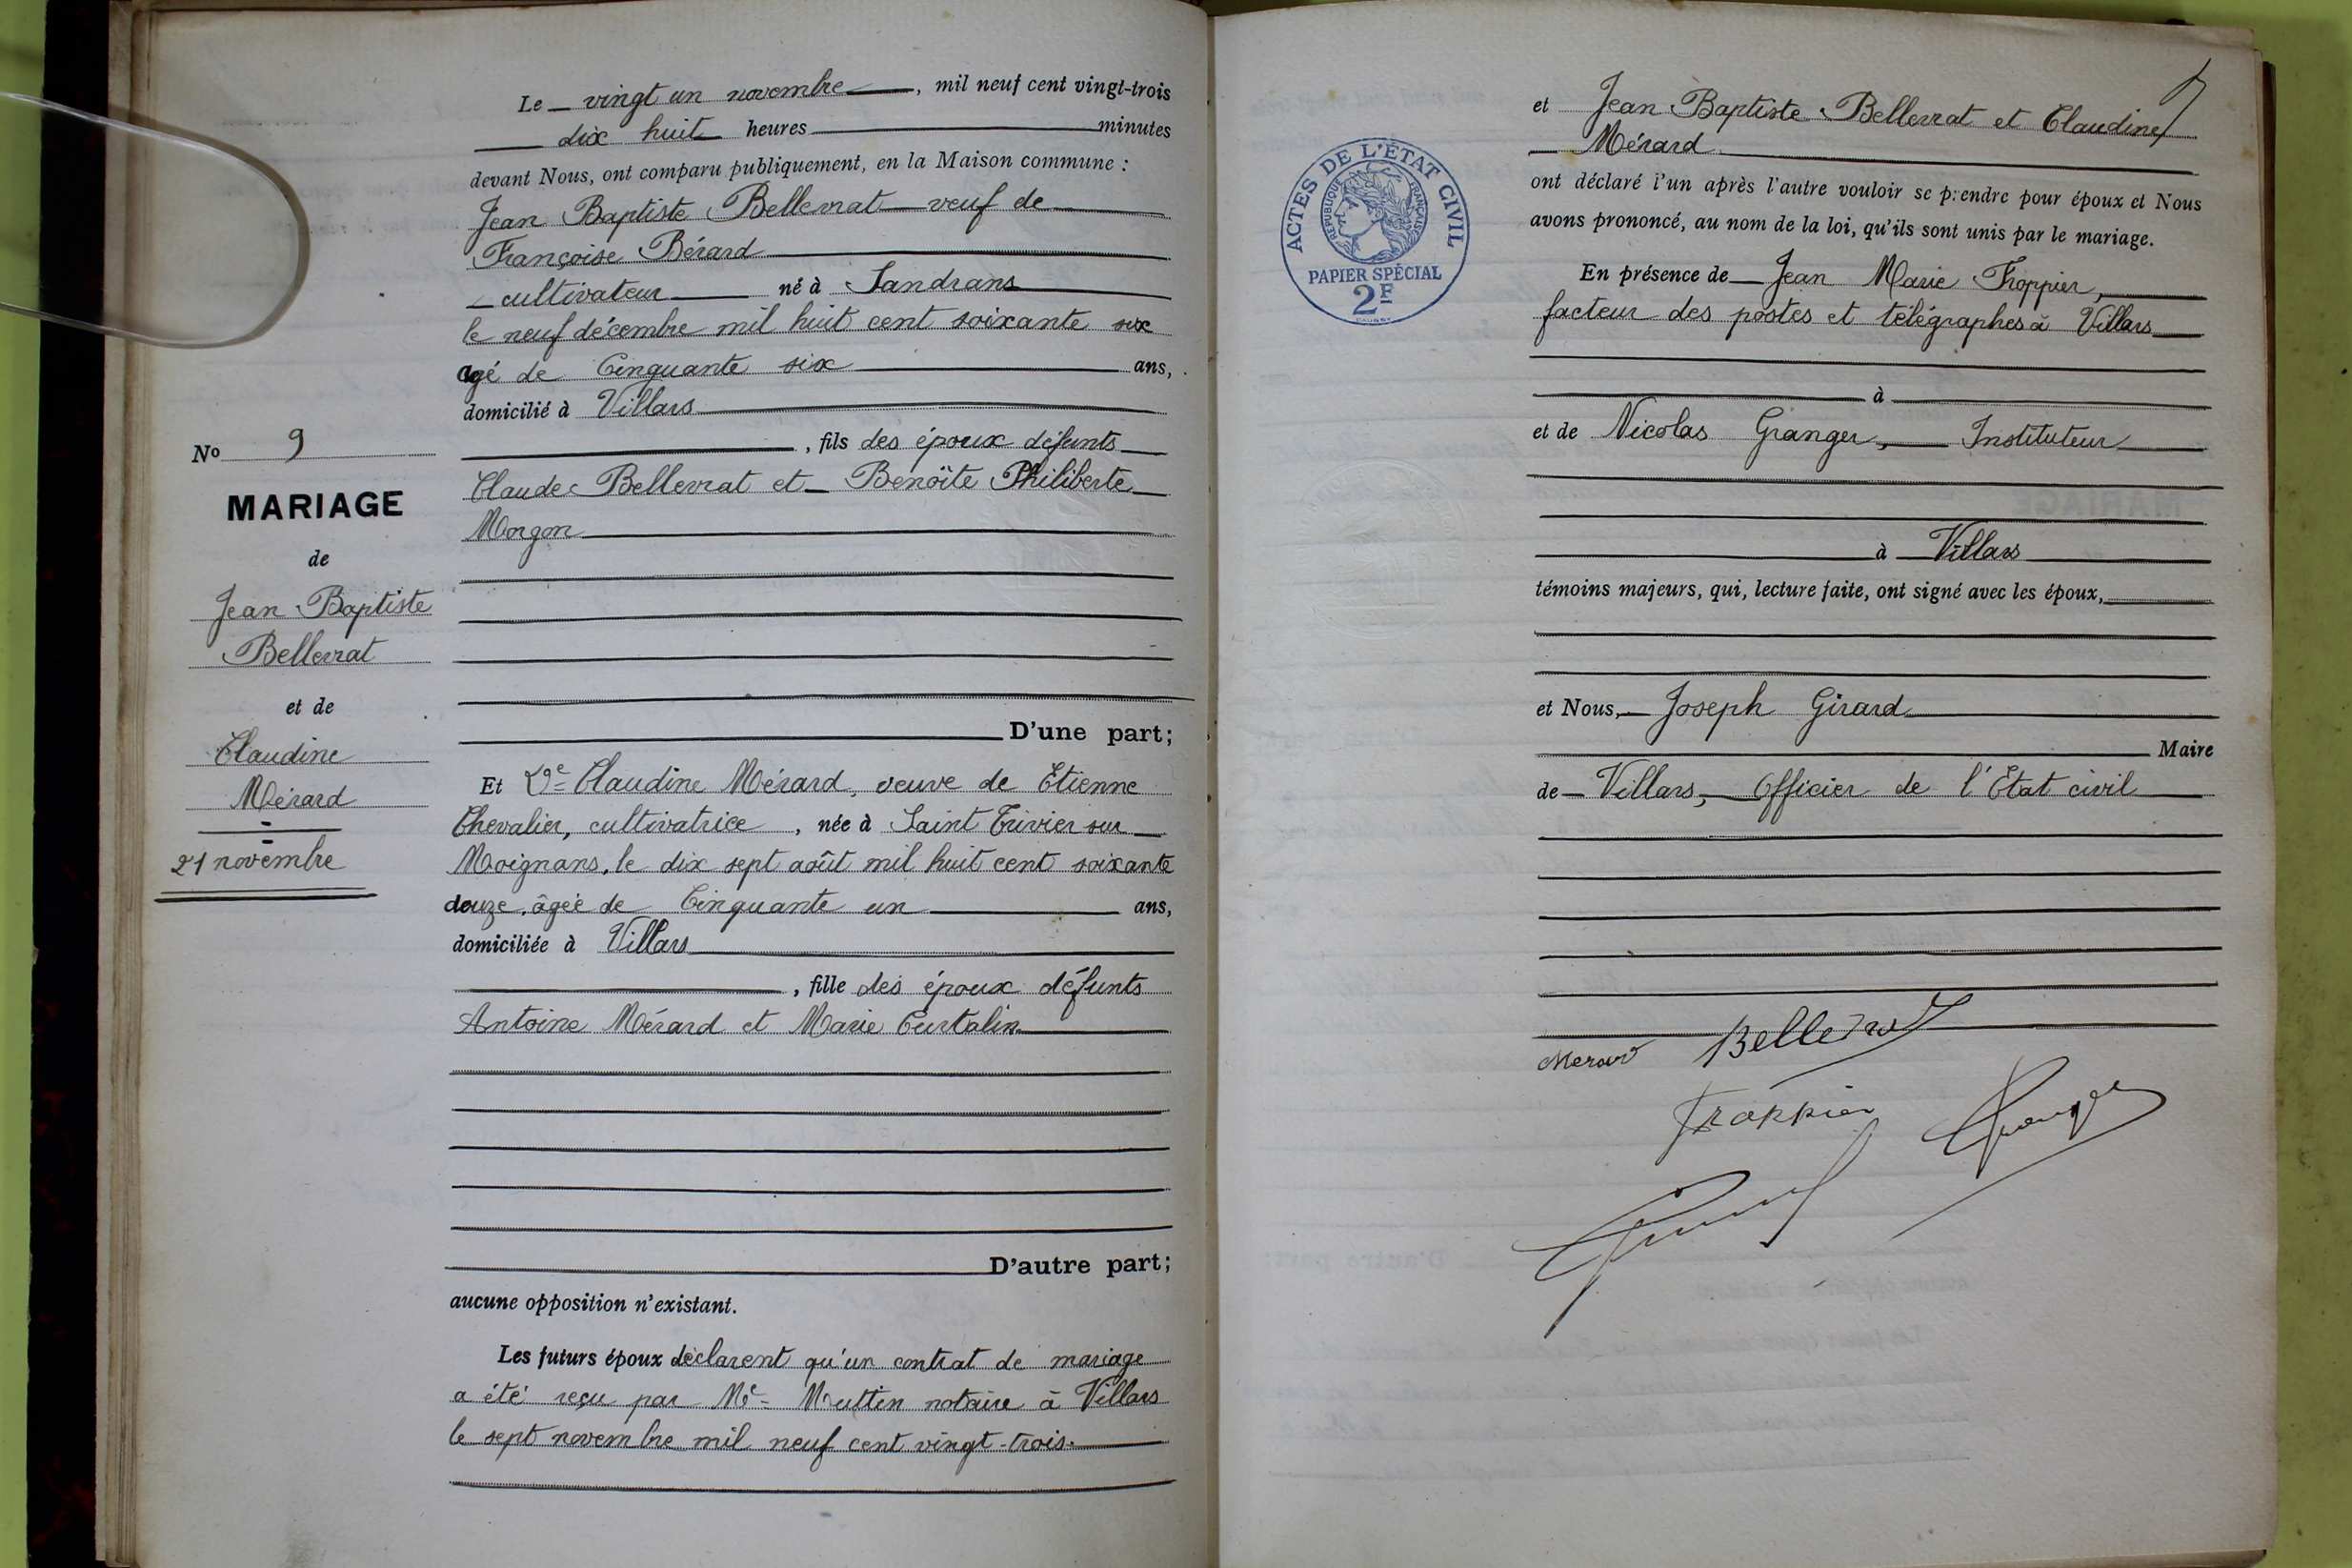 Le vingt un novembre, mil neuf cent vingt-trois
dix huit heures minutes
devant Nous, ont comparu publiquement, en la Maison commune :
Jean Baptiste Bellevrat veuf de
Françoise Bérard
cultivateur né à Sandrans
le neuf décembre mil huit cent soixante six
agé de Cinquante six ans,
domicilié à Villars
, fils des époux défunts
Claude Bellevrat et Benoîte Philiberte
Morgon
D'une part;
No 9
MARIAGE
de
Jean Baptiste
Bellevrat
et de
Claudine
Mérard
21 novembre
Et Claudine Mérard, veuve de Etienne
Chevalier, cultivatrice, née à Saint Trivier sur
Moignans, le dix sept août mil huit cent soixante
douze, âgée de Cinquante un ans,
domiciliée à Villars
, fille des époux défunts
Antoine Mérard et Marie Curtalin
D'autre part;
aucune opposition n'existant.
Les futurs époux déclarent qu'un contrat de mariage
a été reçu par Me Muttin notaire à Villars
le sept novembre mil neuf cent vingt-trois.
ACTES DE L'ÉTAT CIVIL
RÉPUBLIQUE FRANÇAISE
PAPIER SPÉCIAL
2F
et Jean Baptiste Bellevrat et Claudine
Mérard
ont déclaré l'un après l'autre vouloir se prendre pour époux et Nous
avons prononcé, au nom de la loi, qu'ils sont unis par le mariage.
En présence de Jean Marie Froppier,
facteur des postes et télégraphes à Villars
à
et de Nicolas Granger, Instituteur
à Villars
témoins majeurs, qui, lecture faite, ont signé avec les époux,
et Nous, Joseph Girard
Maire
de Villars, Officier de l'Etat civil
Merard Bellevrat
Froppier Granger